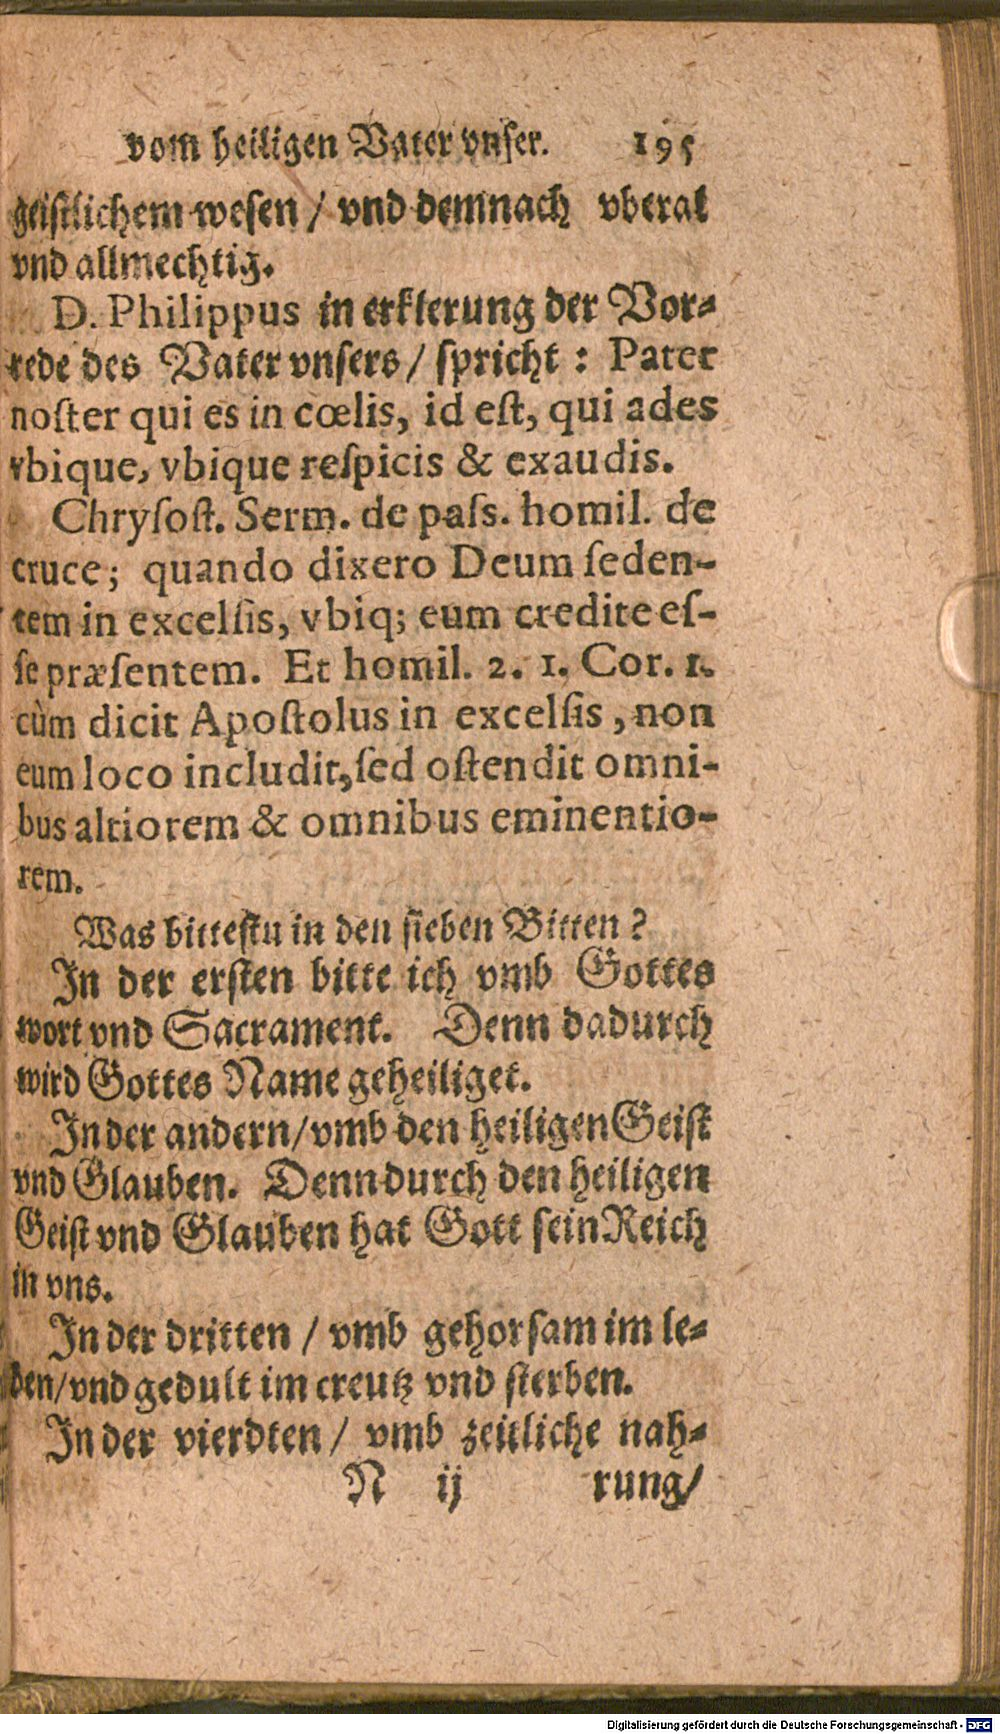 vom heiligen Vater vnser. 195
geiſtlichem weſen / vnd demnach vberal
vnd allmechtig.
D. Philippus in erklerung der Vor-
rede des Vater vnſers / ſpricht : Pater
noſter qui es in cœlis, id eſt, qui ades
vbique, vbique reſpicis & exaudis.
Chryſoſt. Serm. de paſs. homil. de
cruce; quando dixero Deum ſeden-
tem in excelſis, vbiq; eum credite eſ-
ſe præſentem. Et homil. 2. 1. Cor. 1.
cùm dicit Apoſtolus in excelſis, non
eum loco includit, ſed oſtendit omni-
bus altiorem & omnibus eminentio-
rem.
Was bitteſtu in den ſieben Bitten ?
In der erſten bitte ich vmb Gottes
wort vnd Sacrament. Denn dadurch
wird Gottes Name geheiliget.
In der andern / vmb den heiligen Geiſt
vnd Glauben. Denn durch den heiligen
Geiſt vnd Glauben hat Gott ſein Reich
in vns.
In der dritten / vmb gehorſam im le-
ben / vnd gedult im creutz vnd ſterben.
In der vierdten / vmb zeitliche nah-
N ij rung /
Digitalisierung gefördert durch die Deutsche Forschungsgemeinschaft - DFG